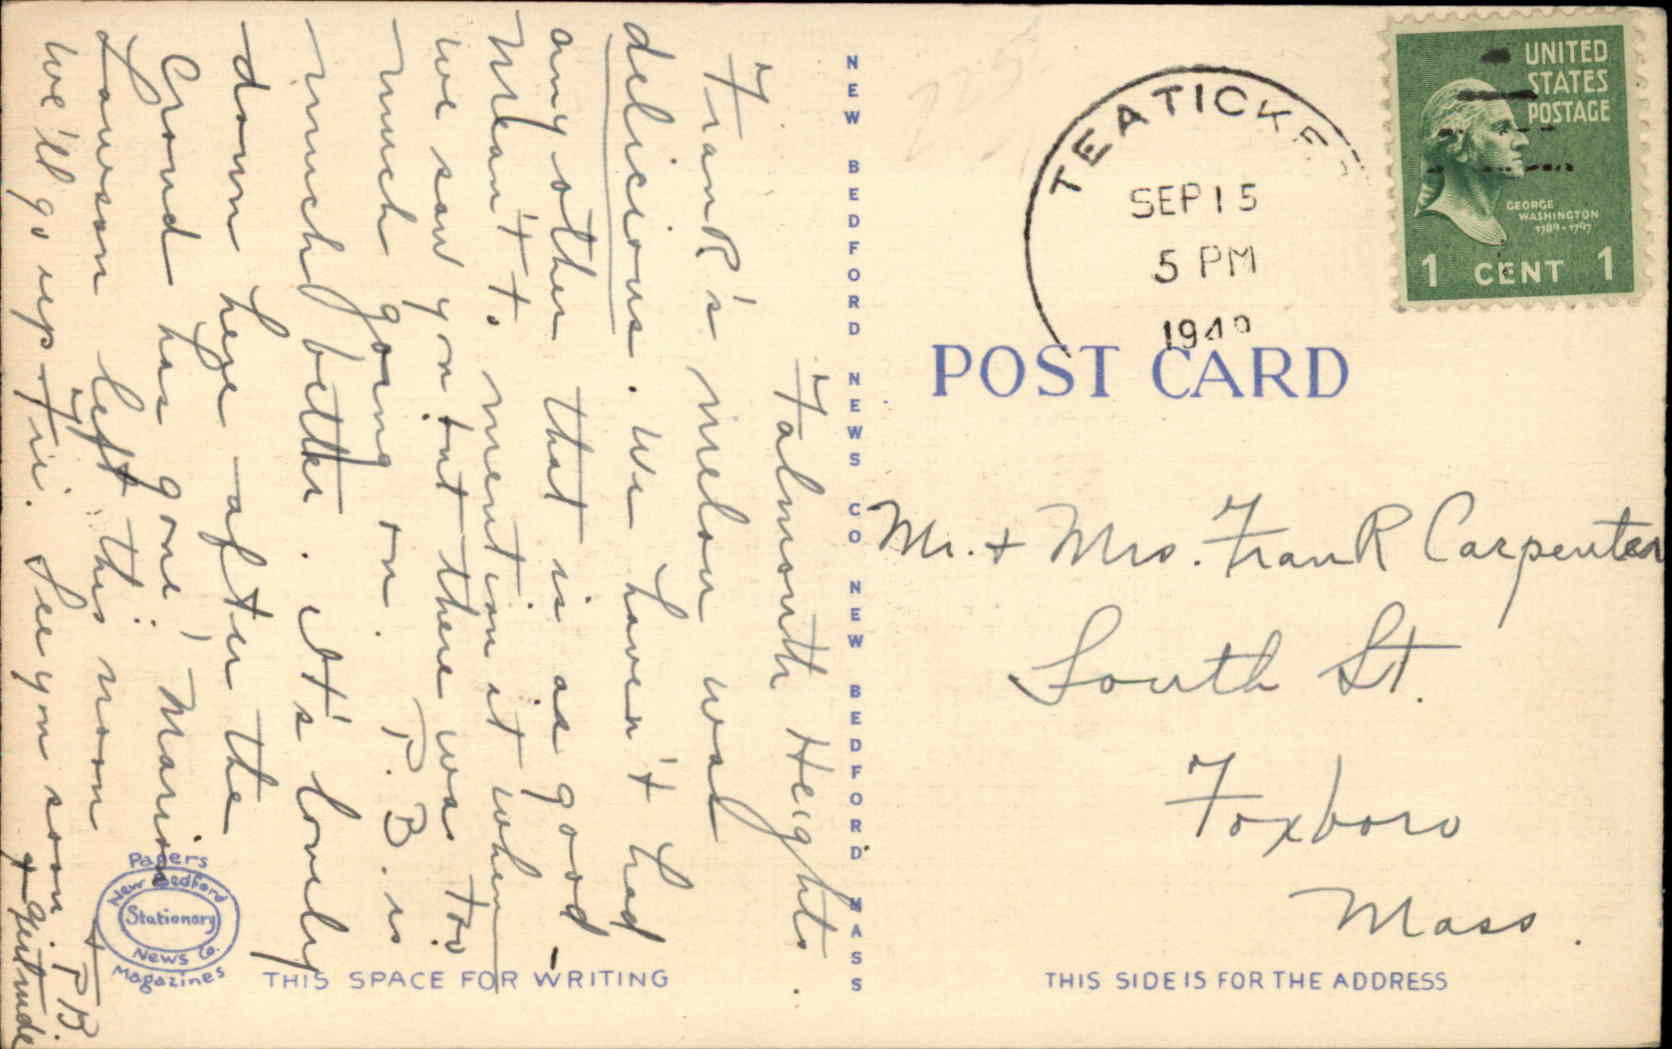 Falmouth Heights.
Frank's melon was
delicious. We haven't had
any other that is as good.
Mean't to mention it when
we saw you but there was too
much going on. P.B. is
much better. It's lovely
down here after the
Crowd has gone! Marion
Lawson left this noon
We'll go up Fri. See you soon.
P.B.
+ Gertrude
NEW BEDFORD NEWS CO NEW BEDFORD MASS
TEATICKET
SEP 15
5 PM
UNITED
STATES
POSTAGE
GEORGE
WASHINGTON
1789-1797
1 CENT 1
POST CARD
Mr. + Mrs. Frank Carpenter
South St.
Foxboro
Mass.
Papers
New Bedford
Stationary
News Co.
Magazines
THIS SPACE FOR WRITING
THIS SIDE IS FOR THE ADDRESS